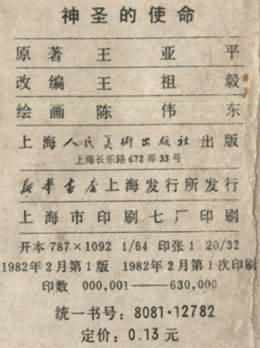 神圣的使命
原著 王亚平
改编 王祖毅
绘画 陈伟东
上海人民美術出版社出版
上海长乐路672弄33号
新华書店上海发行所发行
上海市印刷七厂印刷
开本787×1092 1/64 印张1 20/32
1982年2月第1版 1982年2月第1次印刷
印数 000,001——630,000
统一书号：8081·12782
定价：0.13元